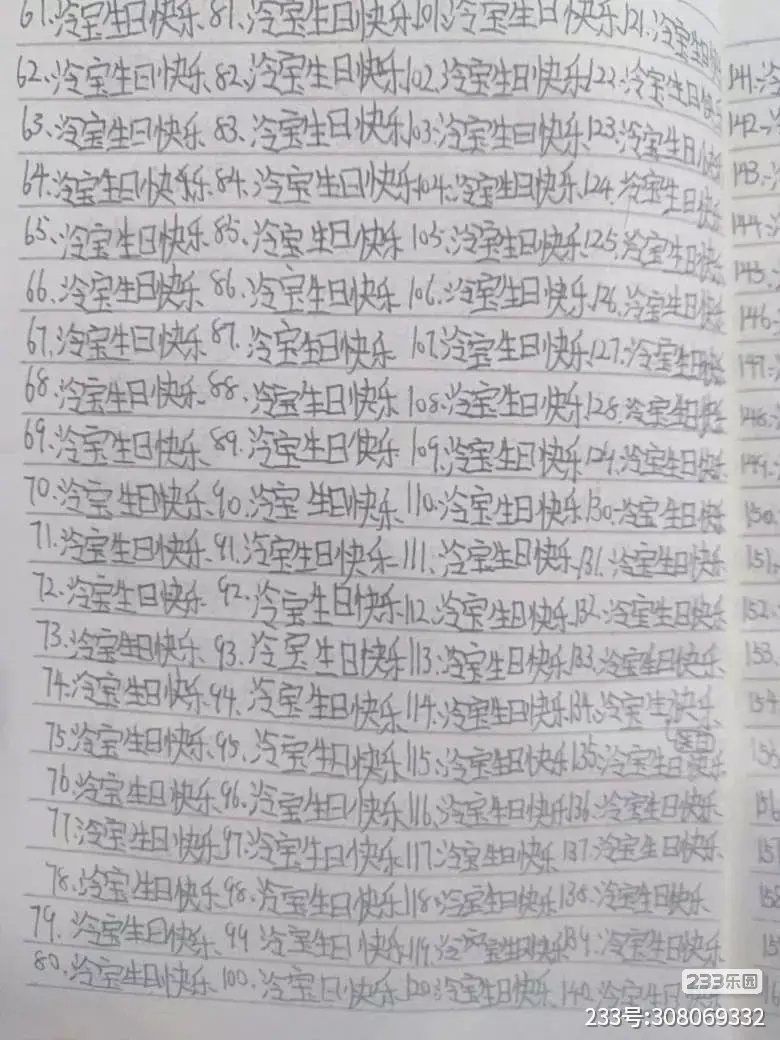 61.冷宝生日快乐 81.冷宝生日快乐 101.冷宝生日快乐 121.冷宝生日快
62.冷宝生日快乐 82.冷宝生日快乐 102.冷宝生日快乐 122.冷宝生日快 141.冷
63.冷宝生日快乐 83.冷宝生日快乐 103.冷宝生日快乐 123.冷宝生日快 142.
64.冷宝生日快乐 84.冷宝生日快乐 104.冷宝生日快乐 124.冷宝生日快 143.
65.冷宝生日快乐 85.冷宝生日快乐 105.冷宝生日快乐 125.冷宝生日快 144.
66.冷宝生日快乐 86.冷宝生日快乐 106.冷宝生日快乐 126.冷宝生日快 145.
67.冷宝生日快乐 87.冷宝生日快乐 107.冷宝生日快乐 127.冷宝生日快乐 146.
68.冷宝生日快乐 88.冷宝生日快乐 108.冷宝生日快乐 128.冷宝生日快乐 147.
69.冷宝生日快乐 89.冷宝生日快乐 109.冷宝生日快乐 129.冷宝生日快乐 148.
70.冷宝生日快乐 90.冷宝生日快乐 110.冷宝生日快乐 130.冷宝生日快乐 149.
71.冷宝生日快乐 91.冷宝生日快乐 111.冷宝生日快乐 131.冷宝生日快乐 150.
72.冷宝生日快乐 92.冷宝生日快乐 112.冷宝生日快乐 132.冷宝生日快乐 151.
73.冷宝生日快乐 93.冷宝生日快乐 113.冷宝生日快乐 133.冷宝生日快乐 152.
74.冷宝生日快乐 94.冷宝生日快乐 114.冷宝生日快乐 134.冷宝生快乐 153.
75.冷宝生日快乐 95.冷宝生日快乐 115.冷宝生日快乐 135.冷宝生日快乐 154.
76.冷宝生日快乐 96.冷宝生日快乐 116.冷宝生日快乐 136.冷宝生日快乐 156
77.冷宝生日快乐 97.冷宝生日快乐 117.冷宝生日快乐 137.冷宝生日快乐 157
78.冷宝生日快乐 98.冷宝生日快乐 118.冷宝生日快乐 138.冷宝生日快乐 158
79.冷宝生日快乐 99 冷宝生日快乐 119.冷宝生日快乐 139.冷宝生日快乐
80.冷宝生日快乐 100.冷宝日快乐 120.冷宝生日快乐 140.冷宝生日快乐
233乐园
233号:308069332